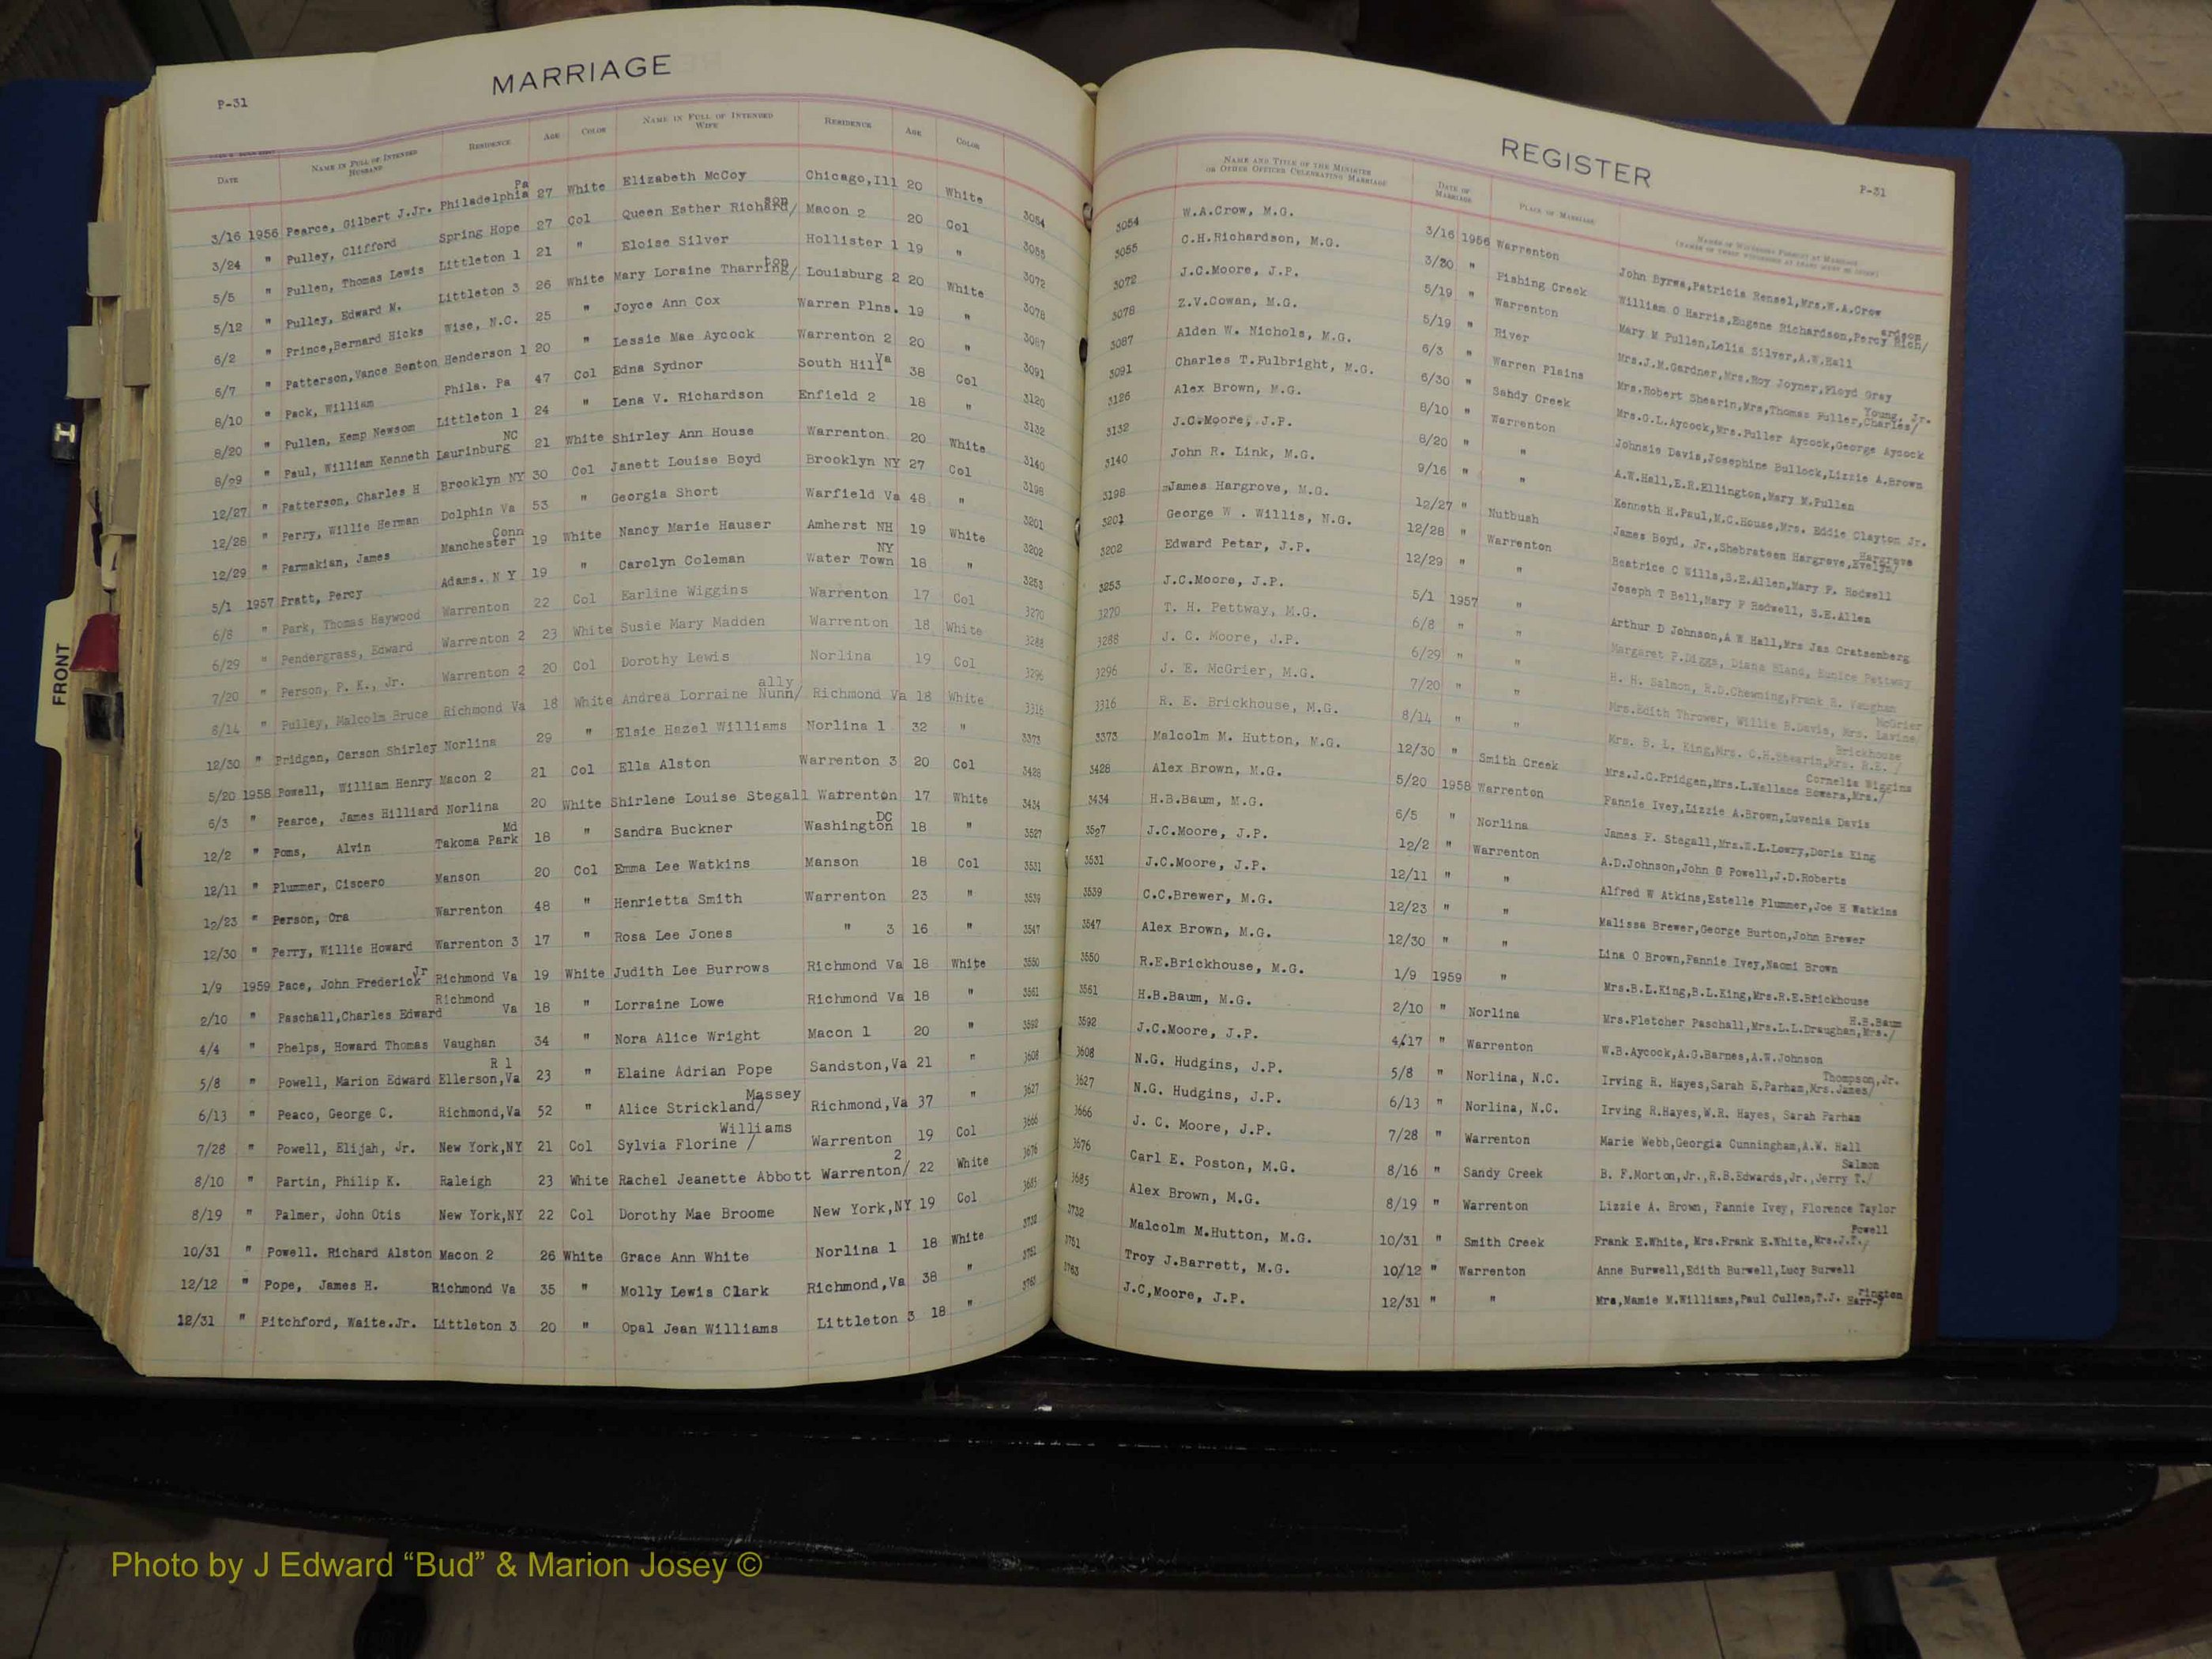 MARRIAGE
P-31
DATE
NAME IN FULL OF INTENDED HUSBAND
RESIDENCE
AGE
COLOR
NAME IN FULL OF INTENDED WIFE
RESIDENCE
AGE
COLOR
3/16 1956 Pearce, Gilbert J.Jr. Philadelphia Pa 27 White Elizabeth McCoy Chicago,Ill 20 White 3054
3/24 " Pulley, Clifford Spring Hope 27 Col Queen Esther Richard/son Macon 2 20 Col 3055
5/5 " Pullen, Thomas Lewis Littleton 1 21 " Eloise Silver Hollister 1 19 " 3072
5/12 " Pulley, Edward M. Littleton 3 26 White Mary Loraine Tharring/ton Louisburg 2 20 White 3078
6/2 " Prince,Bernard Hicks Wise, N.C. 25 " Joyce Ann Cox Warren Plns. 19 " 3087
6/7 " Patterson,Vance Benton Henderson 1 20 " Lessie Mae Aycock Warrenton 2 20 " 3091
8/10 " Pack, William Phila. Pa 47 Col Edna Sydnor South Hill Va 38 Col 3126
8/20 " Pullen, Kemp Newsom Littleton 1 24 " Lena V. Richardson Enfield 2 18 " 3132
8/29 " Paul, William Kenneth Laurinburg NC 21 White Shirley Ann House Warrenton 20 White 3140
12/27 " Patterson, Charles H Brooklyn NY 30 Col Janett Louise Boyd Brooklyn NY 27 Col 3198
12/28 " Perry, Willie Herman Dolphin Va 53 " Georgia Short Warfield Va 48 " 3201
12/29 " Parmakian, James Manchester Conn 19 White Nancy Marie Hauser Amherst NH 19 White 3202
5/1 1957 Pratt, Percy Adams. N Y 19 " Carolyn Coleman Water Town NY 18 " 3253
6/8 " Park, Thomas Haywood Warrenton 22 Col Earline Wiggins Warrenton 17 Col 3270
6/29 " Pendergrass, Edward Warrenton 2 23 White Susie Mary Madden Warrenton 18 White 3288
7/20 " Person, P. K., Jr. Warrenton 2 20 Col Dorothy Lewis Norlina 19 Col 3296
8/14 " Pulley, Malcolm Bruce Richmond Va 18 White Andrea Lorraine Nunn/ally Richmond Va 18 White 3316
12/30 " Pridgen, Carson Shirley Norlina 29 " Elsie Hazel Williams Norlina 1 32 " 3373
5/20 1958 Powell, William Henry Macon 2 21 Col Ella Alston Warrenton 3 20 Col 3428
6/3 " Pearce, James Hilliard Norlina 20 White Shirlene Louise Stegall Warrenton 17 White 3434
12/2 " Poms, Alvin Takoma Park Md 18 " Sandra Buckner Washington DC 18 " 3527
12/11 " Plummer, Ciscero Manson 20 Col Emma Lee Watkins Manson 18 Col 3531
12/23 " Person, Ora Warrenton 48 " Henrietta Smith Warrenton 23 " 3539
12/30 " Perry, Willie Howard Warrenton 3 17 " Rosa Lee Jones " 3 16 " 3547
1/9 1959 Pace, John Frederick Jr Richmond Va 19 White Judith Lee Burrows Richmond Va 18 White 3550
2/10 " Paschall,Charles Edward Richmond Va 18 " Lorraine Lowe Richmond Va 18 " 3561
4/4 " Phelps, Howard Thomas Vaughan 34 " Nora Alice Wright Macon 1 20 " 3592
5/8 " Powell, Marion Edward R 1 Ellerson,Va 23 " Elaine Adrian Pope Sandston,Va 21 " 3608
6/13 " Peaco, George C. Richmond,Va 52 " Alice Strickland/ Massey Richmond,Va 37 " 3627
7/28 " Powell, Elijah, Jr. New York,NY 21 Col Sylvia Florine / Williams Warrenton 19 Col 3666
8/10 " Partin, Philip K. Raleigh 23 White Rachel Jeanette Abbott Warrenton/ 2 22 White 3676
8/19 " Palmer, John Otis New York,NY 22 Col Dorothy Mae Broome New York,NY 19 Col 3685
10/31 " Powell. Richard Alston Macon 2 26 White Grace Ann White Norlina 1 18 White 3732
12/12 " Pope, James H. Richmond Va 35 " Molly Lewis Clark Richmond,Va 38 " 3751
12/31 " Pitchford, Waite.Jr. Littleton 3 20 " Opal Jean Williams Littleton 3 18 " 3763
REGISTER
P-31
NAME AND TITLE OF THE MINISTER OR OTHER OFFICER CELEBRATING MARRIAGE
DATE OF MARRIAGE
PLACE OF MARRIAGE
NAMES OF WITNESSES PRESENT AT MARRIAGE
3054 W.A.Crow, M.G. 3/16 1956 Warrenton John Byrwa,Patricia Rensel,Mrs.W.A.Crow
3055 C.H.Richardson, M.G. 3/30 " Fishing Creek William O Harris,Eugene Richardson,Percy Rich/ardson
3072 J.C.Moore, J.P. 5/19 " Warrenton Mary M Pullen,Lelia Silver,A.W.Hall
3078 Z.V.Cowan, M.G. 5/19 " River Mrs.J.M.Gardner,Mrs.Roy Joyner,Floyd Gray
3087 Alden W. Nichols, M.G. 6/3 " Warren Plains Mrs.Robert Shearin,Mrs,Thomas Fuller,Charles/ Young, Jr.
3091 Charles T.Fulbright, M.G. 6/30 " Sandy Creek Mrs.G.L.Aycock,Mrs.Fuller Aycock,George Aycock
3126 Alex Brown, M.G. 8/10 " Warrenton Johnsie Davis,Josephine Bullock,Lizzie A.Brown
3132 J.C.Moore, J.P. 8/20 " " A.W.Hall,E.R.Ellington,Mary M.Pullen
3140 John R. Link, M.G. 9/16 " " Kenneth H.Paul,M.C.House,Mrs. Eddie Clayton Jr.
3198 James Hargrove, M.G. 12/27 " Nutbush James Boyd, Jr.,Shebrateen Hargrove,Evelyn/ Hargrove
3201 George W . Willis, N.G. 12/28 " Warrenton Beatrice C Wills,S.E.Allen,Mary F. Rodwell
3202 Edward Petar, J.P. 12/29 " " Joseph T Bell,Mary F Rodwell, S.E.Allen
3253 J.C.Moore, J.P. 5/1 1957 " Arthur D Johnson,A W Hall,Mrs Jas Cratsenberg
3270 T. H. Pettway, M.G. 6/8 " " Margaret P.Diggs, Diana Bland, Eunice Pettway
3288 J. C. Moore, J.P. 6/29 " " H. H. Salmon, R.D.Chewning,Frank B. Vaughan
3296 J. E. McGrier, M.G. 7/20 " " Mrs.Edith Thrower, Willie B.Davis, Mrs. Lavine/ McGrier
3316 R. E. Brickhouse, M.G. 8/14 " " Mrs. B. L. King,Mrs. C.H.Shearin,Mrs. R.E. / Brickhouse
3373 Malcolm M. Hutton, M.G. 12/30 " Smith Creek Mrs.J.C.Pridgen,Mrs.L.Wallace Bowers,Mrs./ Cornelia Wiggins
3428 Alex Brown, M.G. 5/20 1958 Warrenton Fannie Ivey,Lizzie A.Brown,Luvenia Davis
3434 H.B.Baum, M.G. 6/5 " Norlina James F. Stegall,Mrs.E.L.Lowry,Doris King
3527 J.C.Moore, J.P. 12/2 " Warrenton A.D.Johnson,John G Powell,J.D.Roberts
3531 J.C.Moore, J.P. 12/11 " " Alfred W Atkins,Estelle Plummer,Joe H Watkins
3539 C.C.Brewer, M.G. 12/23 " " Malissa Brewer,George Burton,John Brewer
3547 Alex Brown, M.G. 12/30 " " Lina O Brown,Fannie Ivey,Naomi Brown
3550 R.E.Brickhouse, M.G. 1/9 1959 " Mrs.B.L.King,B.L.King,Mrs.R.E.Brickhouse
3561 H.B.Baum, M.G. 2/10 " Norlina Mrs.Fletcher Paschall,Mrs.L.L.Draughan,Mrs./ H.B.Baum
3592 J.C.Moore, J.P. 4/17 " Warrenton W.B.Aycock,A.G.Barnes,A.W.Johnson
3608 N.G. Hudgins, J.P. 5/8 " Norlina, N.C. Irving R. Hayes,Sarah E.Parham,Mrs.James/ Thompson,Jr.
3627 N.G. Hudgins, J.P. 6/13 " Norlina, N.C. Irving R.Hayes,W.R. Hayes, Sarah Parham
3666 J. C. Moore, J.P. 7/28 " Warrenton Marie Webb,Georgia Cunningham,A.W. Hall
3676 Carl E. Poston, M.G. 8/16 " Sandy Creek B. F.Morton,Jr.,R.B.Edwards,Jr.,Jerry T./ Salmon
3685 Alex Brown, M.G. 8/19 " Warrenton Lizzie A. Brown, Fannie Ivey, Florence Taylor
3732 Malcolm M.Hutton, M.G. 10/31 " Smith Creek Frank E.White, Mrs.Frank E.White,Mrs.J.T./ Powell
3751 Troy J.Barrett, M.G. 10/12 " Warrenton Anne Burwell,Edith Burwell,Lucy Burwell
3763 J.C,Moore, J.P. 12/31 " " Mrs,Mamie M.Williams,Paul Cullen,T.J. Harr-/rington
FRONT
H
Photo by J Edward “Bud” & Marion Josey ©